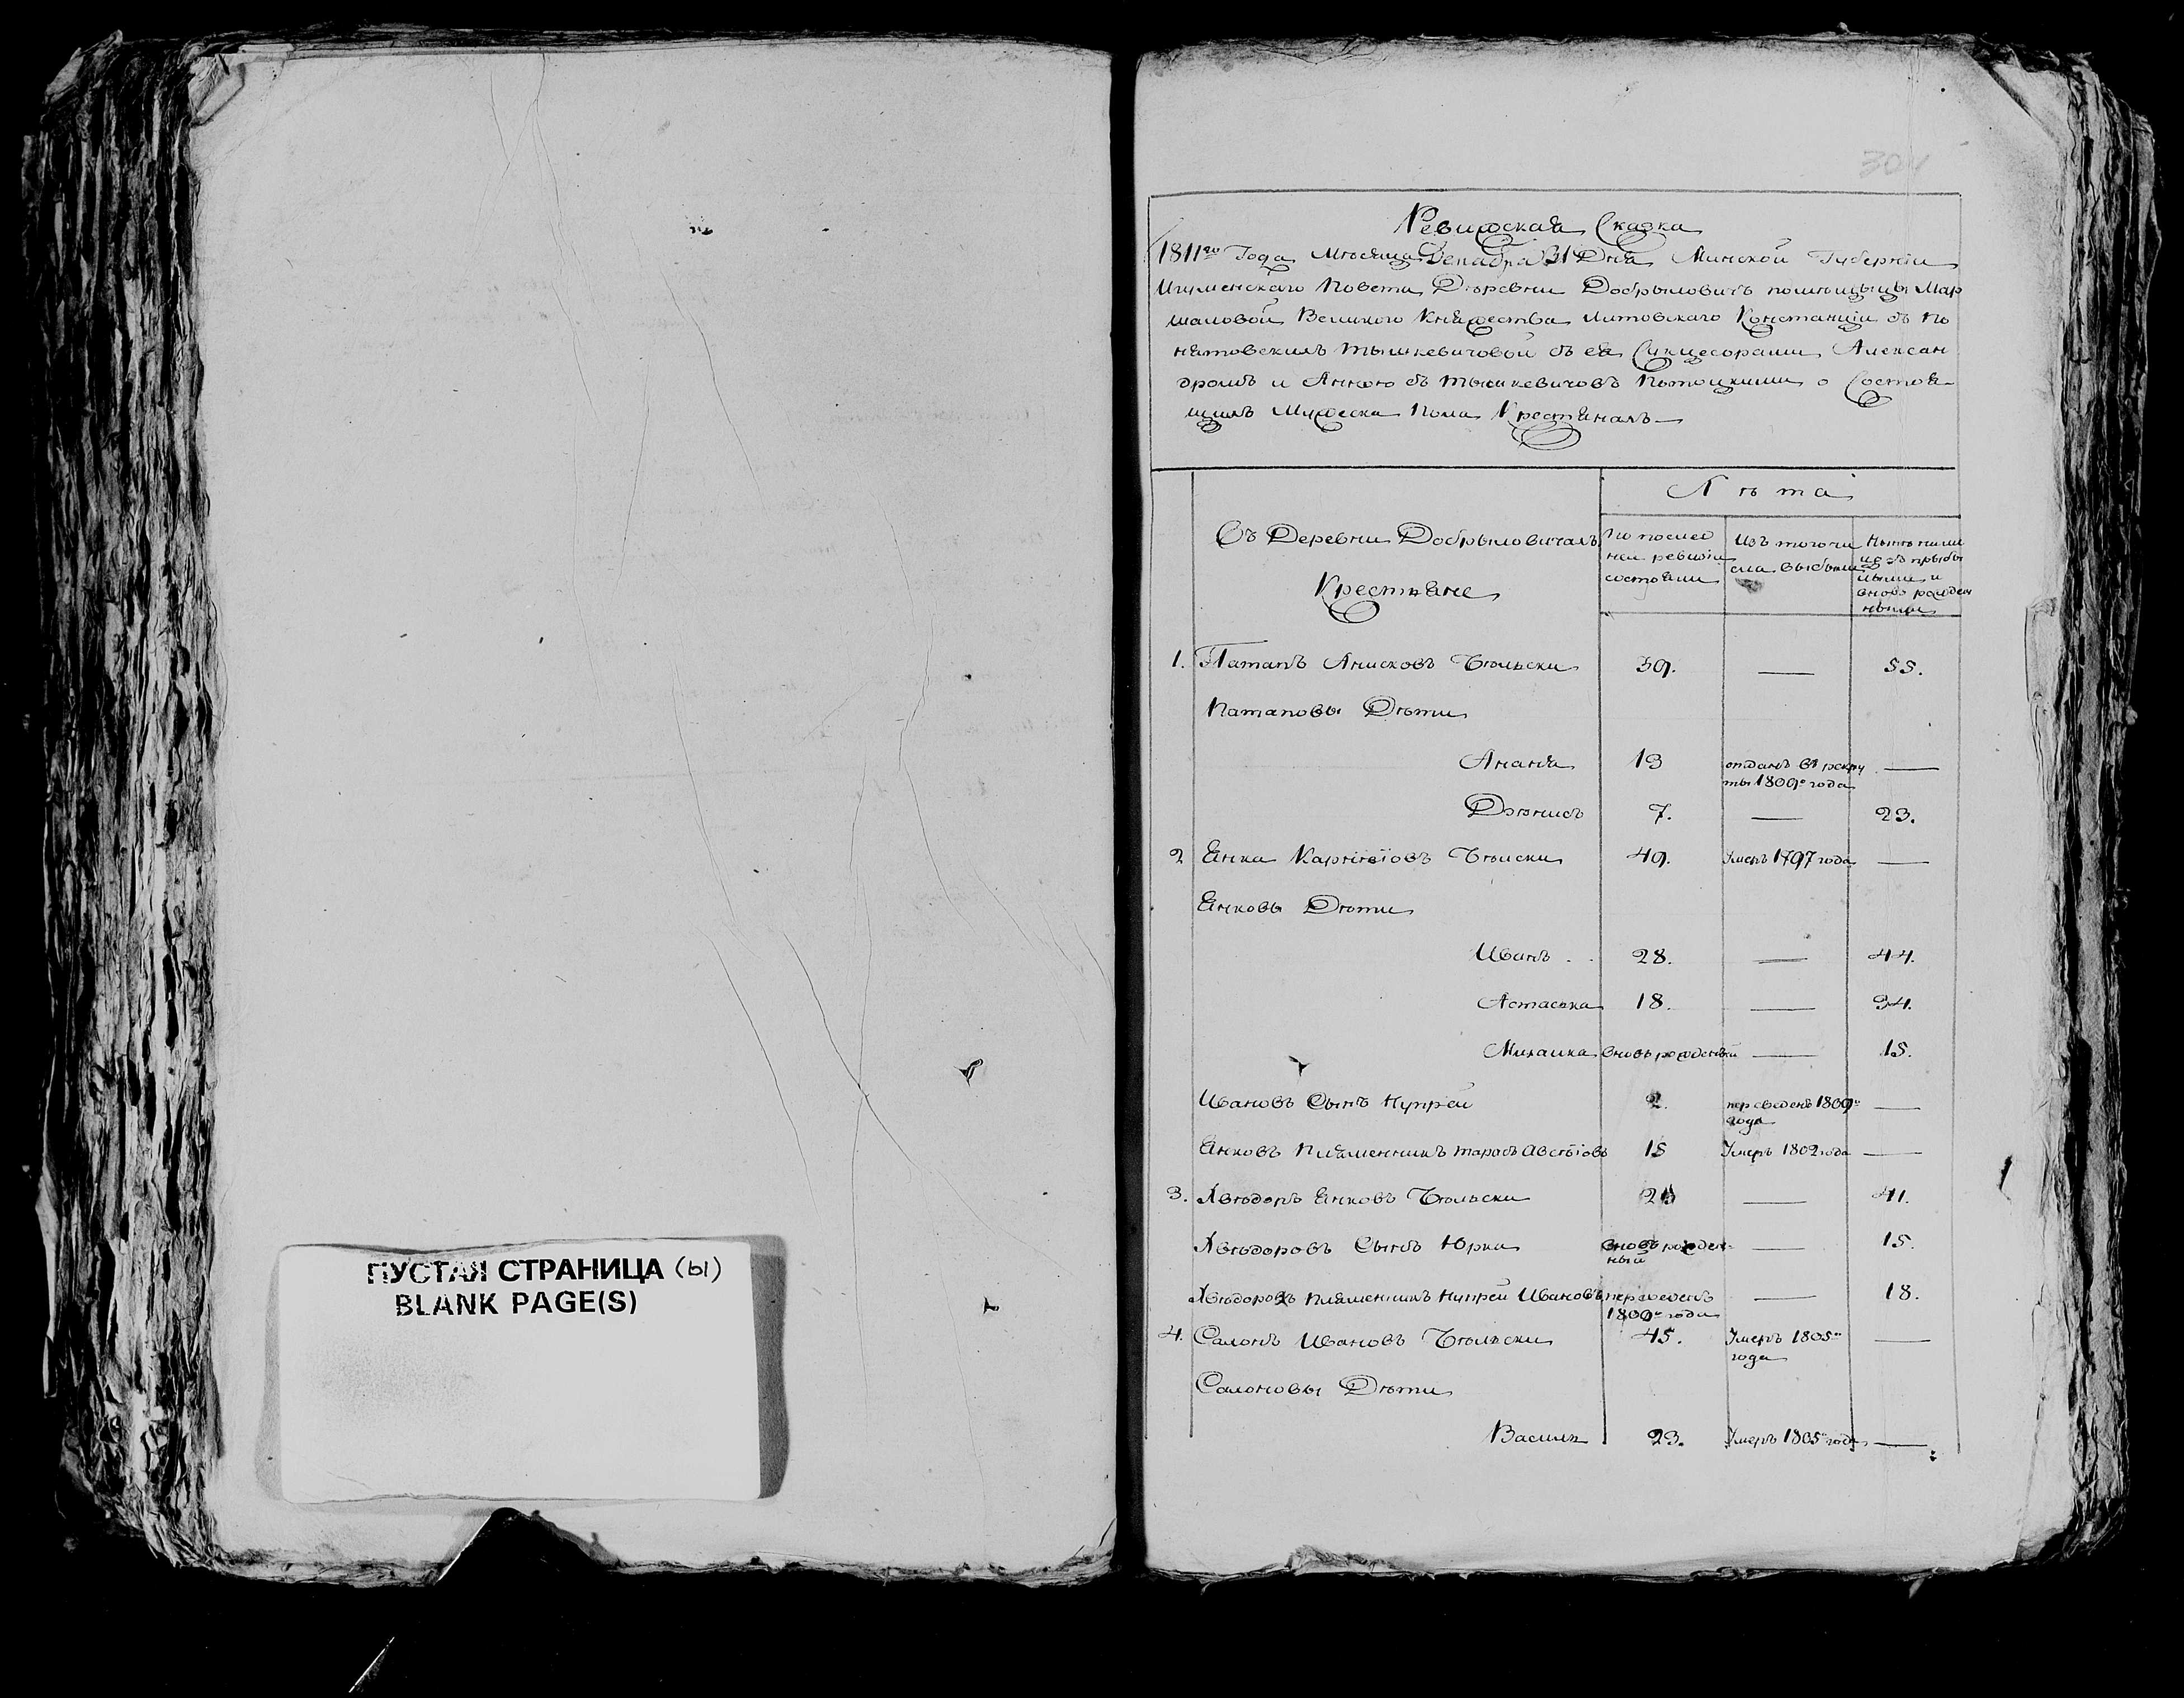 ПУСТАЯ СТРАНИЦА (ы)
BLANK PAGE(S)
304
Ревижская Сказка
1811го Года Мѣсяца Декабря 31 Дня Минской Губерніи
Игуменскаго Повета Дѣревни Добрыловичъ помѣщыцы Мар
шаловой Великого Княжества Литовскаго Констанціи съ По
нятовскихъ Тышкевичовой съ ея Сукцесорами Алексан
дромъ и Анною съ Тышкевичовъ Потоцкими о Состоя
щихъ Мужеска Пола Крестянахъ
Лѣта
Въ Деревни Добрыловичахъ
Крестяне
По послед
ней ревизіи
состояли
Изъ того чи
сла выбыли
Нынѣ на лицо
съ прыбы
лыми и
вновь рожден
ными
1. Патапъ Анисковъ Бѣльски 39. — 55.
Патаповы Дѣти
Ананя 13 отданъ въ рекру
ты 1809го года —
Дэнисъ 7. — 23.
2 Янка Карнѣіовъ Бѣлски 49. Умеръ 1797 года —
Янковы Дѣти
Иванъ 28. — 44.
Астаська 18. — 34.
Михалка вновь рожденый — 15.
Ивановъ Сынъ Купрей 2. переведенъ 1809го
года —
Янковъ Пляменникъ Тарасъ Авсѣіовъ 15 Умеръ 1802 года —
3. Хвѣдоръ Янковъ Бѣльски 25 — 41.
Хвѣдоровъ Сынъ Юрка вновь рожден-
ный — 15.
Хвѣдоровъ Пляменникъ Купрей Ивановъ переведенъ
1809го года — 18.
4. Салонъ Ивановъ Бѣльски 45. Умеръ 1805го
года —
Салоновы Дѣти
Василь 23. Умеръ 1805го года —